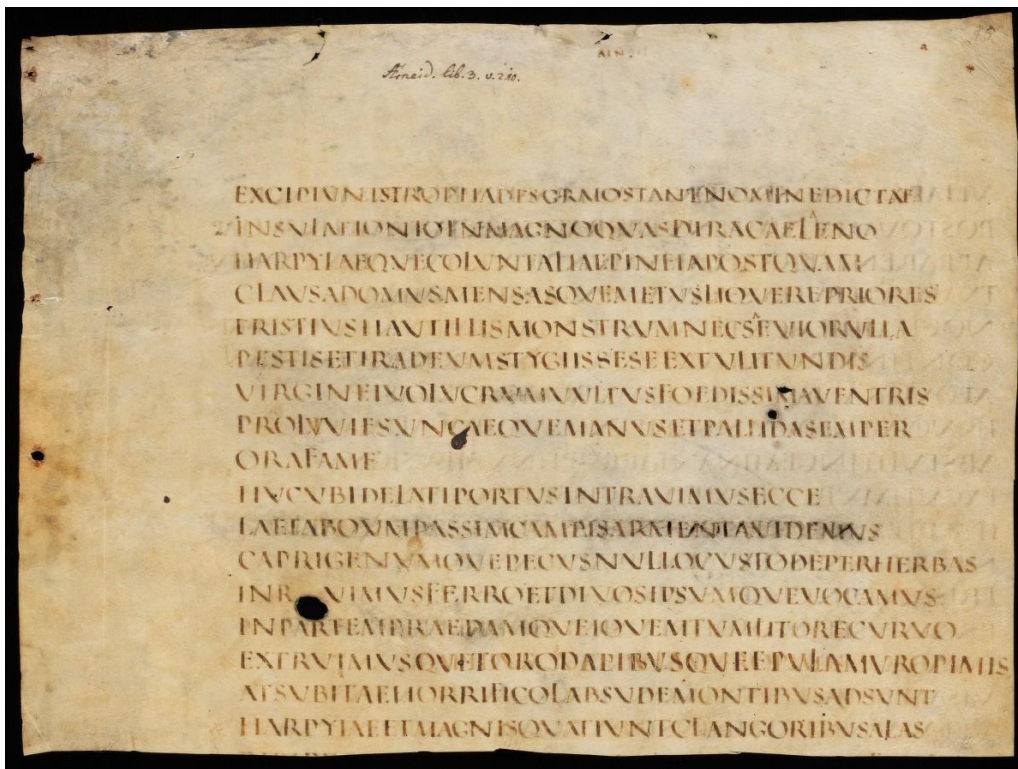 Æneid. lib. 3. v. 210.
EXCIPIVNTSTROPHADESGRAIOSTANTNOMINEDICTAE
INSVLAEIONIOINMAGNOQVASDIRACAELENO
HARPYIAEQVECOLVNTALIAEPINEIAPOSTQVAM
CLAVSADOMVSMENSASQVEMETVSLIQVEREPRIORES
TRISTIVSHAVTILLISMONSTRVMNECSEVIORVLLA
PESTISETIRADEVMSTYGIISSESEEXTVLITVNDIS
VIRGINEIVOLVCRVMVVLTVSFOEDISSIMAVENTRIS
PROLVVIESVNCAEQVEMANVSETPALLIDASEMPER
ORAFAME
HVCVBIDELATIPORTVSINTRAVIMVSECCE
LAETABOVMPASSIMCAMPISARMENTAVIDEMVS
CAPRIGENVMQVEPECVSNVLLOCVSTODEPERHERBAS
INR VIMVSFERROETDIVOSIPSVMQVEVOCAMVS
INPARTEMPRAEDAMQVEIOVEMTVMLITORECVRVO
EXTRVIMVSQVETORODAPIBVSQVEEPVLAMVROPIMIS
ATSVBITAEHORRIFICOLABSVDEMONTIBVSADSVNT
HARPYIAEETMAGNISQVATIVNTCLANGORIBVSALAS